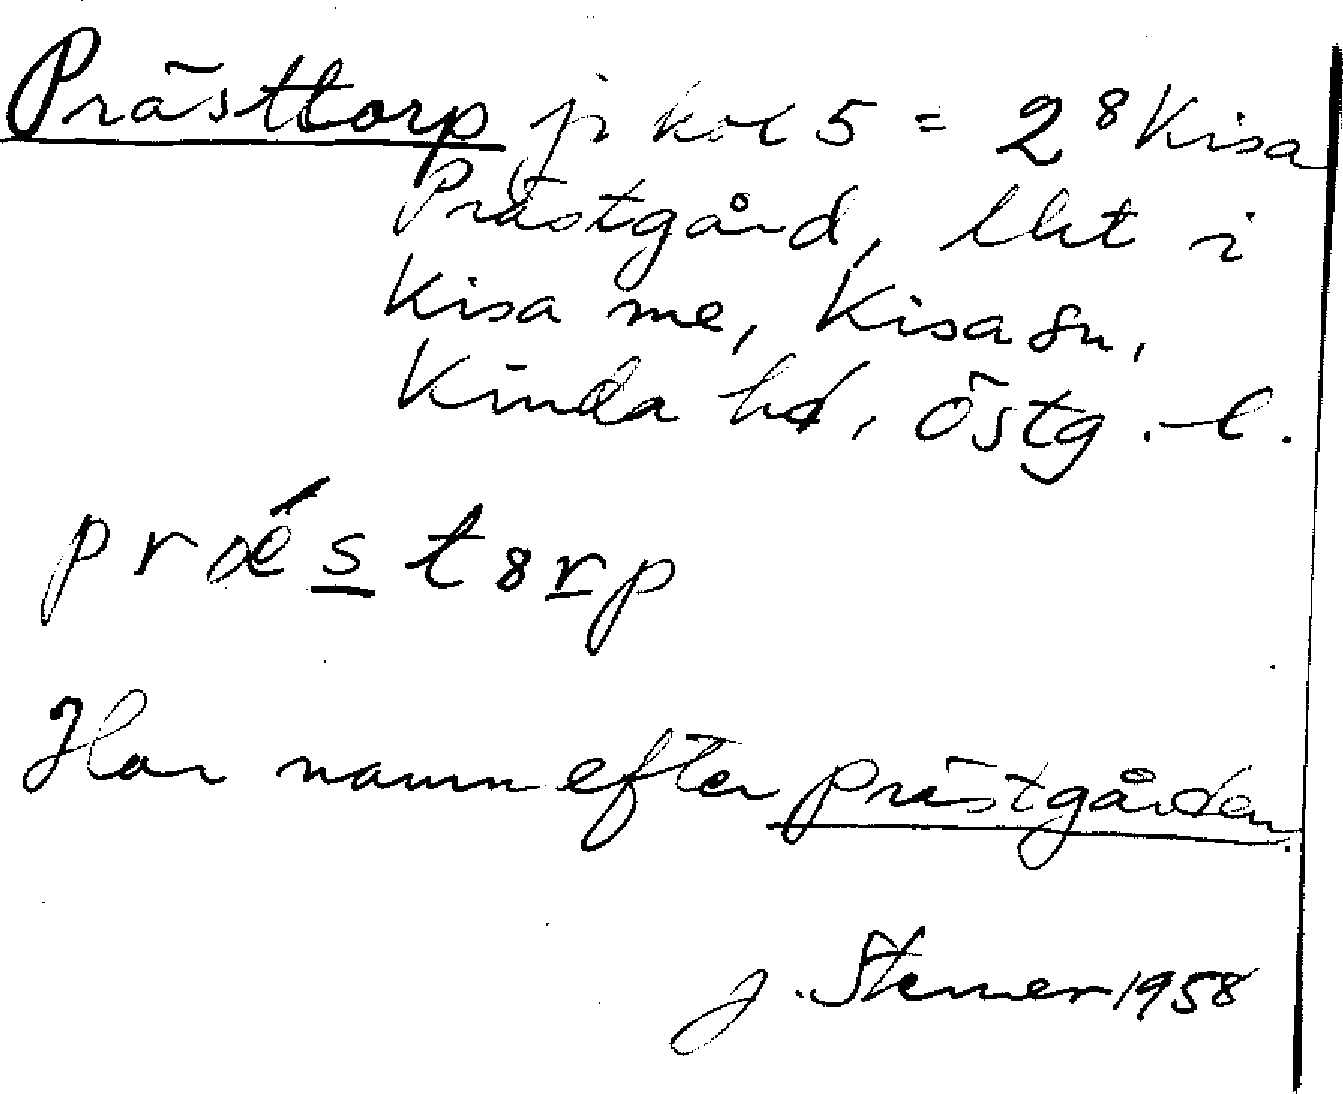 Prästtorp ji kol 5 = 2⁸ Kisa
Prästgård, lht i
Kisa me, Kisa sn,
Kinda hd, Östg.-l.
prǽstorp
Har namn efter prästgården.
J. Stenner 1958